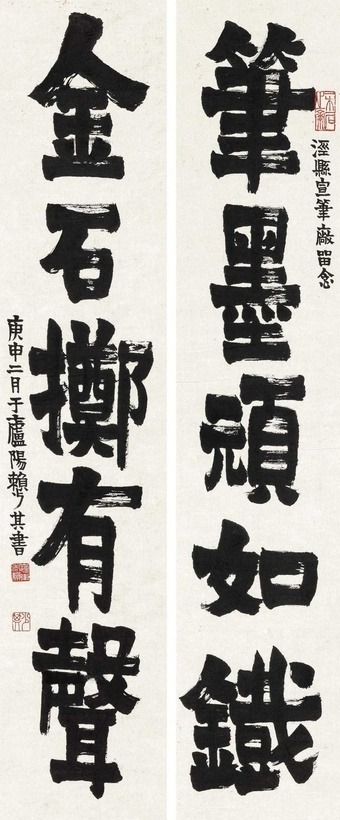 筆墨頑如鐵
涇縣宣筆廠留念
金石擲有聲
庚申二月于廬陽賴少其書